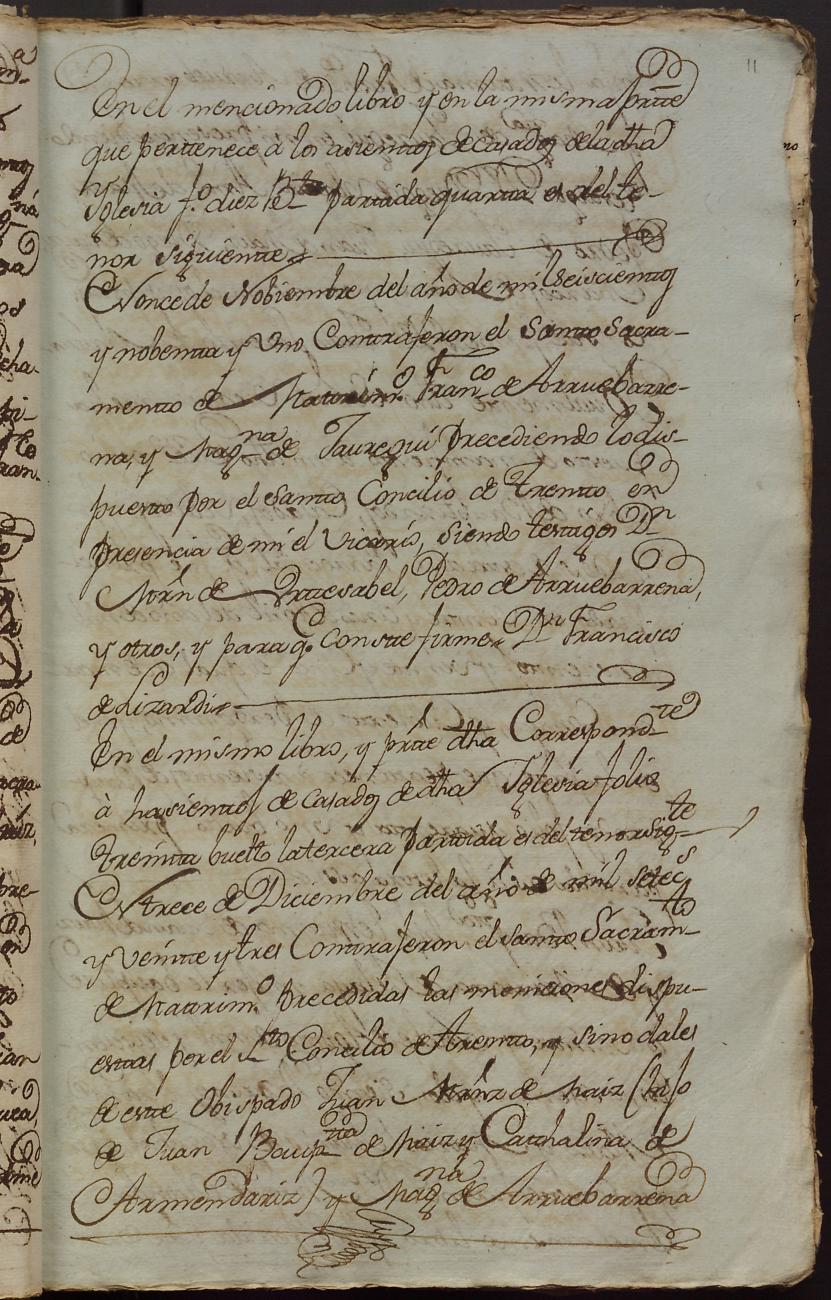 11
En el mencionado libro y en la misma prtte
que pertenece à los asientos de casados de la dha
Yglesia fo. diez Bto partida quarta es del te-
nor siguiente
En once de Nobiembre del año de mil seiscientos
y nobenta y uno Contrajeron el Santo Sacra-
mento de Matrimo. Franco de Arruebarre-
na, y Magna de Jauregui precediendo lo dis-
puesto por el Santo Concilio de Trento en
presencia de mi el Vicario, siendo testigos Dn
Mrn de Yttaesabel, Pedro de Arruebarrena,
y otros, y para q. conste firme. Dn Francisco
de Lizardi
En el mismo libro, y prtte dha Correspondte
à hasientos de casados de dha Yglesia folio
treinta buelto la tercera partida es del tenor sigte
En trece de Diciembre del año de mil setecs
y veinte y tres Contrajeron el santo Sacramto
de Matrimo precedidas las moniciones dispu-
estas por el Sto Concilio de Trento, y sinodales
de este Obispado Juan Mrnz de Maiz (hijo
de Juan Bauptta de Maiz y Cathalina de
Armendariz) y Magna de Arruebarrena